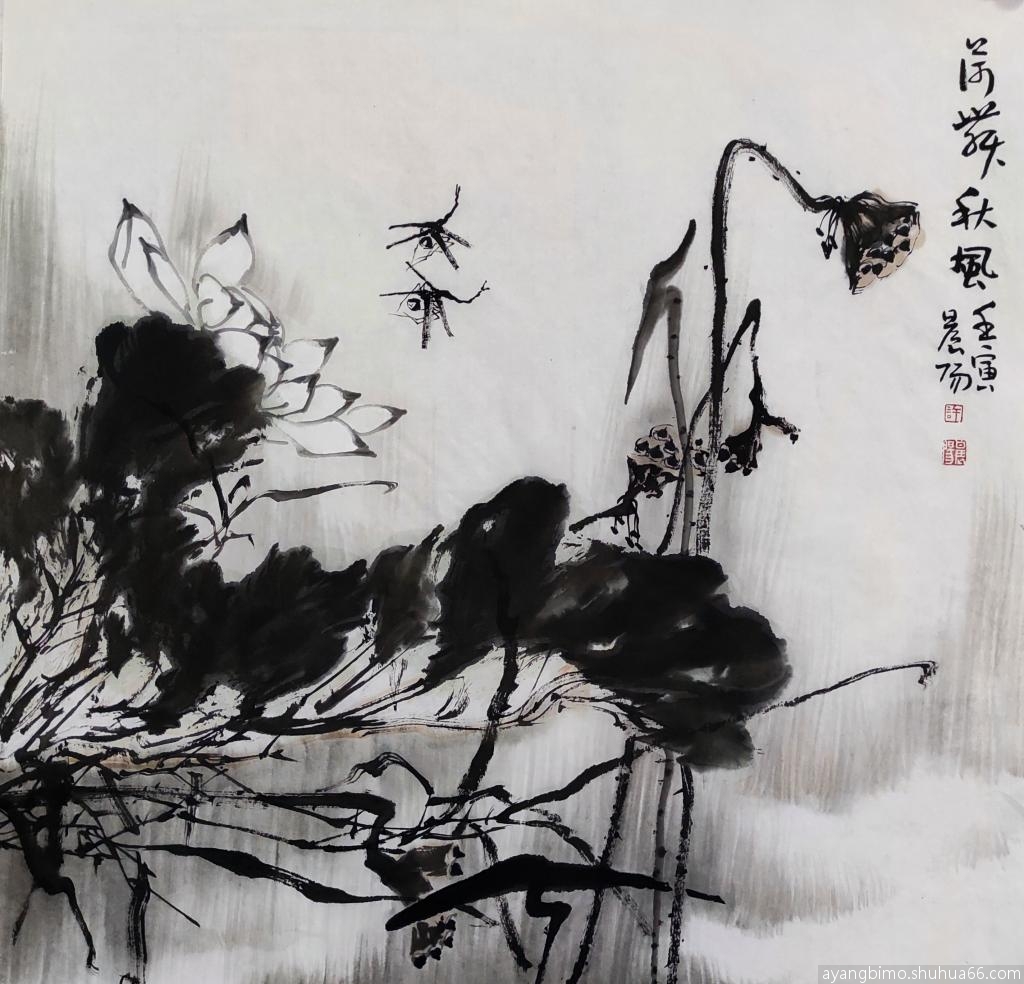 荷舞秋風
壬寅
晨陽
許
ayangbimo.shuhua66.com